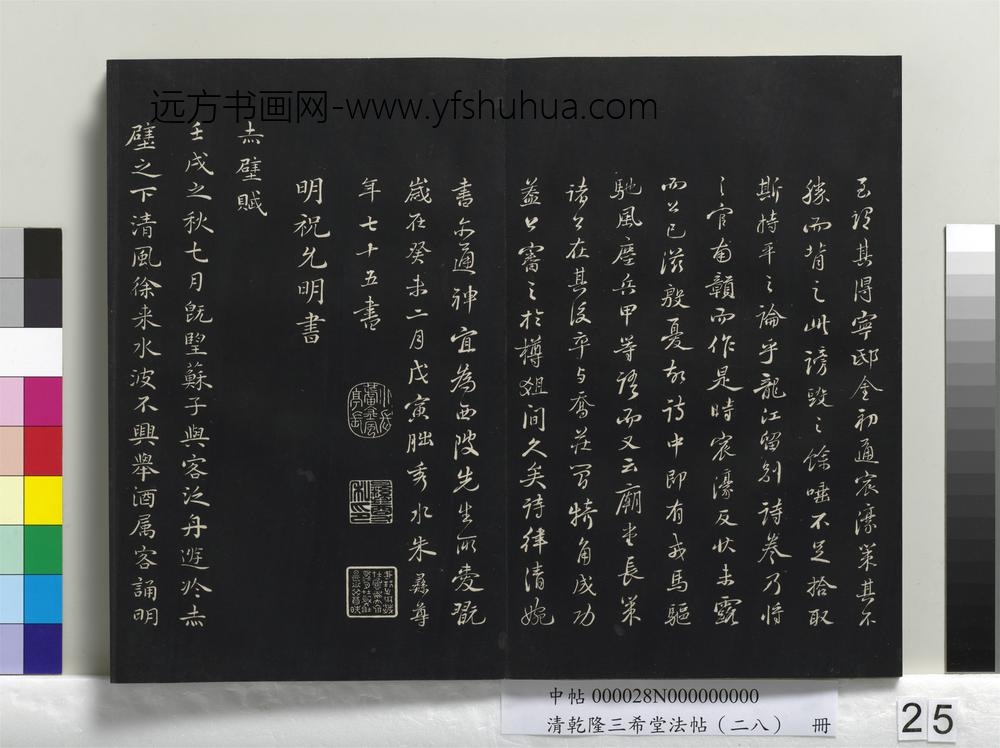 远方书画网-www.yfshuhua.com
至謂其得寧邸金初通宸濠策其不
勝而背之此謗毀之餘唾不足拾取
斯持平之論乎龍江留別詩卷乃將
之官南贛而作是時宸濠反狀未露
而公已滋殷憂故詩中即有戎馬驅
馳風塵兵甲等語而又云廟堂長策
諸公在其後卒与喬莊簡犄角成功
蓋公審之於樽俎間久矣詩律清婉
書亦通神宜為西陂先生所愛翫
歲在癸未二月戊寅朏秀水朱彝尊
年七十五書
明祝允明書
赤壁賦
壬戌之秋七月既望蘇子與客泛舟遊於赤
壁之下清風徐来水波不興舉酒属客誦明
中帖 000028N000000000
清乾隆三希堂法帖（二八） 冊
25